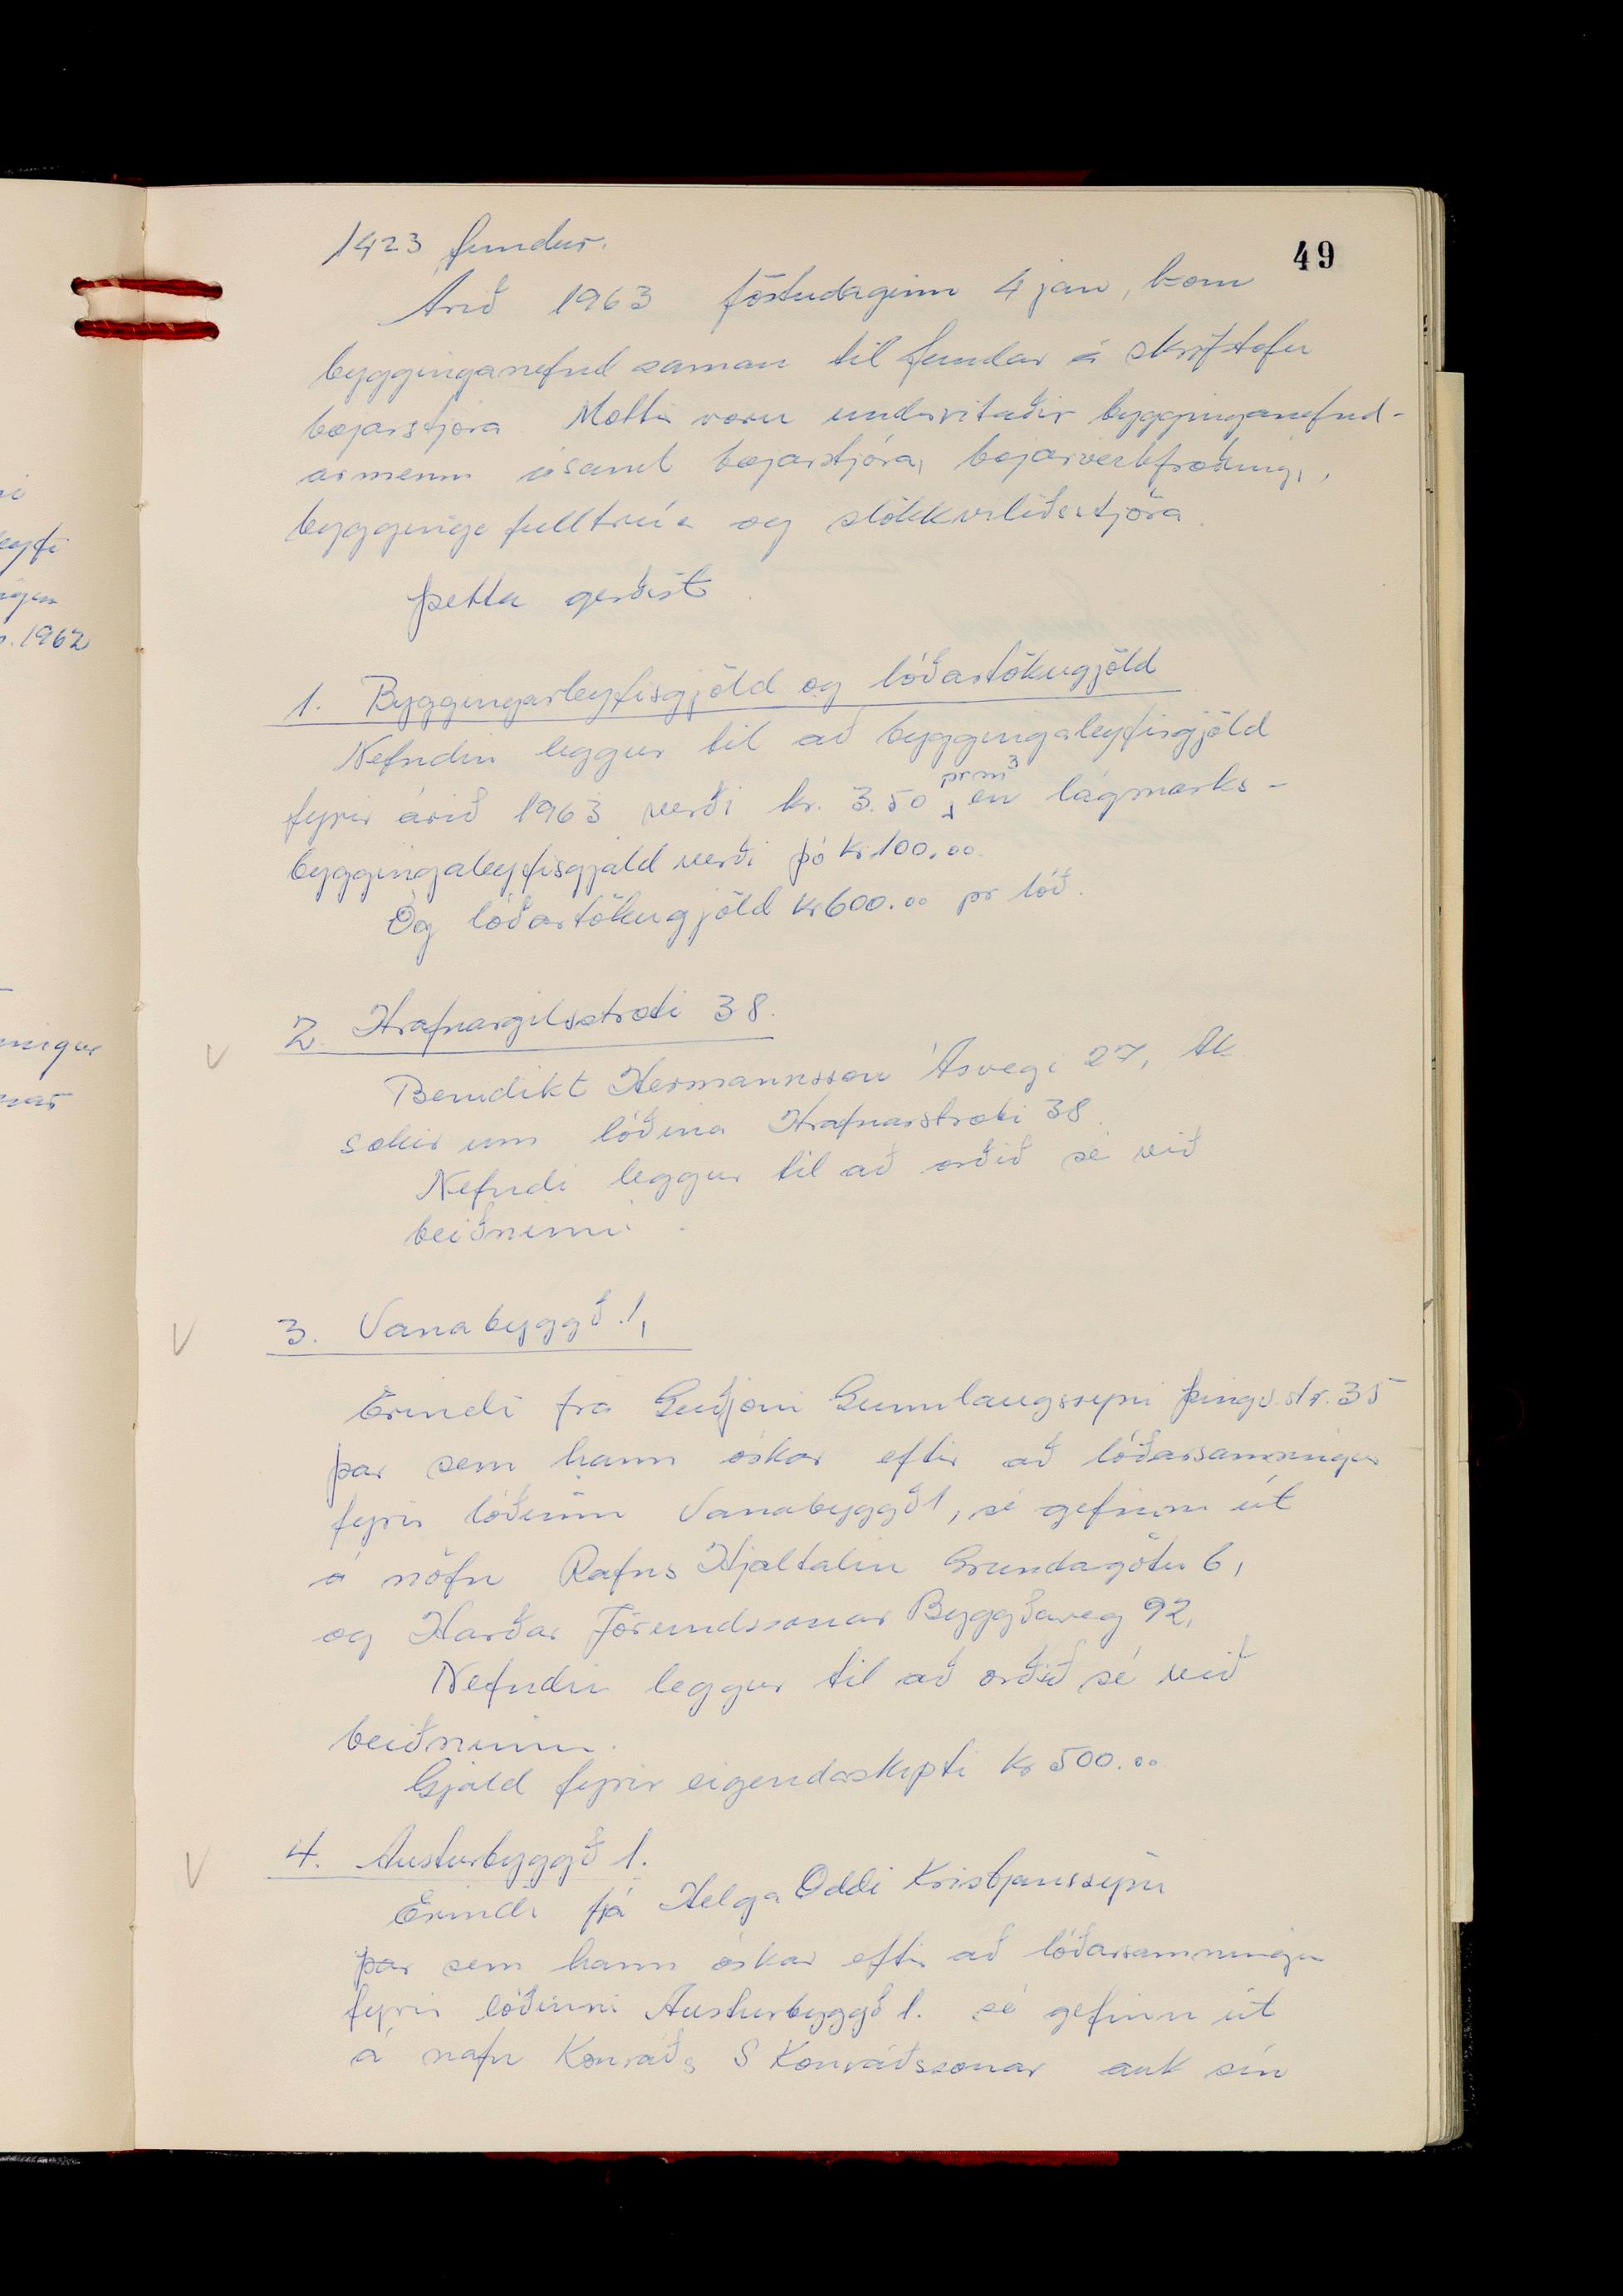 49
1423 fundur.
Árið 1963 föstudaginn 4 jan, kom
bygginganefnd saman til fundar á skrifstofu
bæjarstjóra Mættir voru undirritaðir bygginganefnd-
armenn ásamt bæjarstjóra, bæjarverkfræðingi,
byggingafulltrúa og slökkviliðsstjóra.
Þetta gerðist
1. Byggingarleyfisgjöld og lóðartökugjöld
Nefndin leggur til að byggingaleyfisgjöld
fyrir árið 1963 verði kr. 3.50 pr m³ en lágmarks-
byggingaleyfisgjald verði þó kr 100.00
Og lóðartökugjöld kr 600.00 pr lóð.
2. Hrafnargilsstræti 38.
Benidikt Hermannsson Ásvegi 27, Ak
sækir um lóðina Hrafnarstræti 38.
Nefndi leggur til að orðið sé við
beiðninni.
3. Vanabyggð 1,
Erindi frá Guðjóni Gunnlaugssyni Þingv.str. 35
þar sem hann óskar eftir að lóðarsamningur
fyrir lóðinni Vanabyggð 1, sé gefinn út
á nöfn Rafns Hjaltalín Grundagötu 6,
og Harðar Jörundssonar Byggðaveg 92,
Nefndin leggur til að orðið sé við
beiðninni.
Gjald fyrir eigendaskipti kr 500.00
4. Austurbyggð 1.
Erindi frá Helga Oddi Kristjánssyni
þar sem hann óskar eftir að lóðarsamningur
fyrir lóðinni Austurbyggð 1. sé gefinn út
á nafn Konráðs S Konráðssonar auk sín
eyfi
. 1962